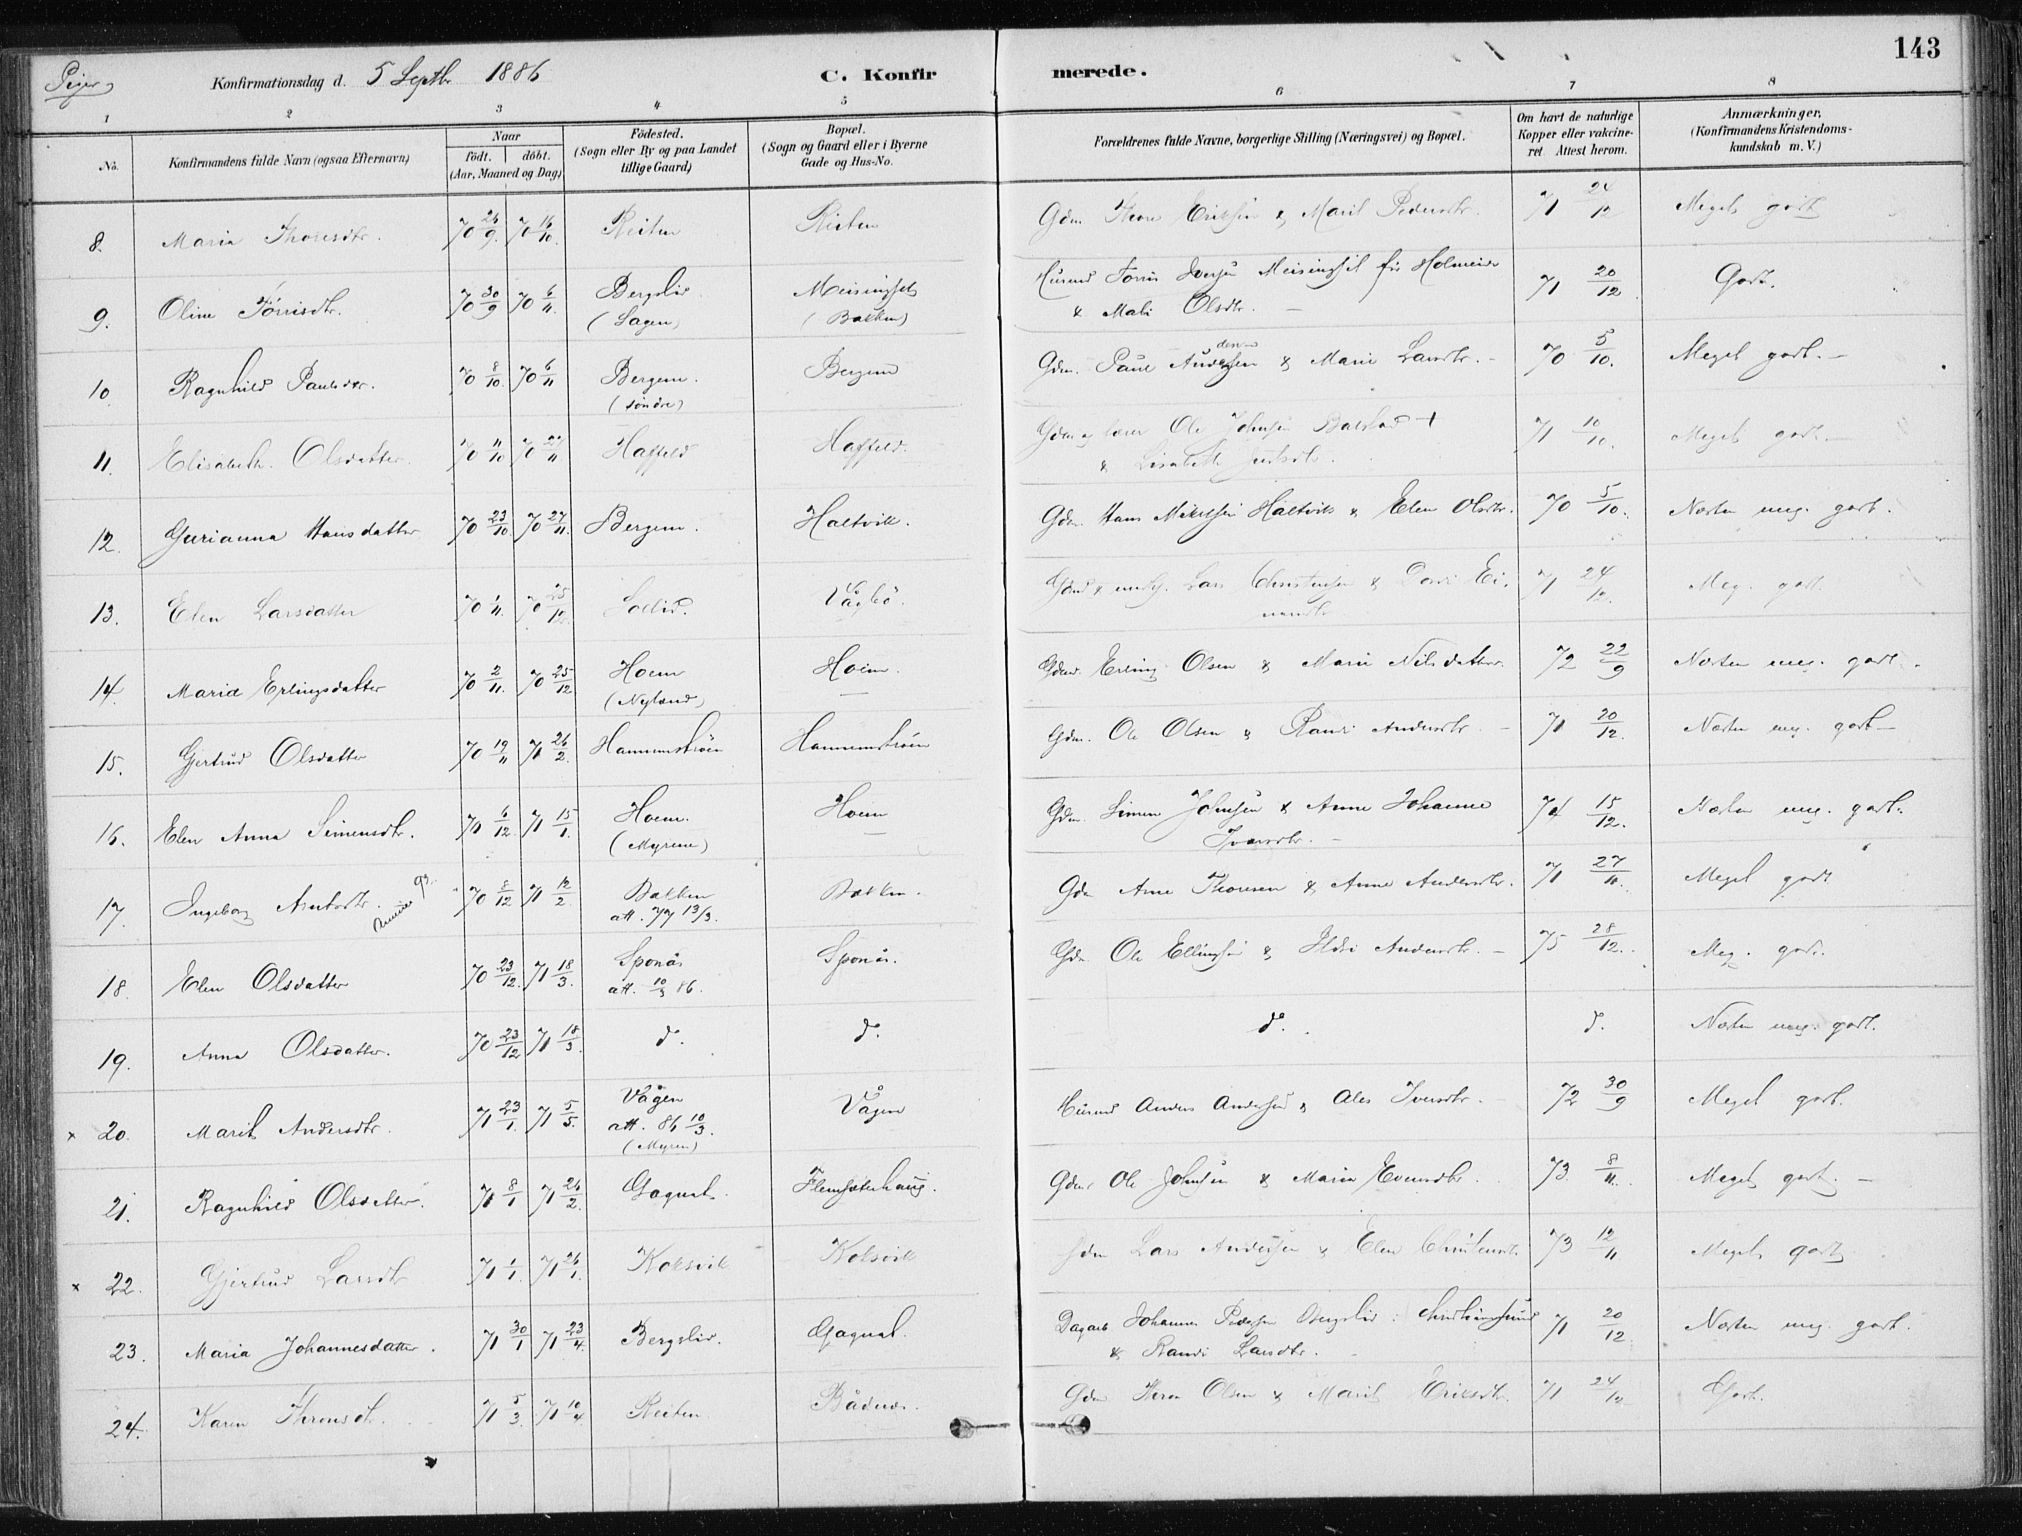 143
Piger
Konfirmationsdag d. 5 Septbr 1886
C. Konfirmerede.
1 2 3 4 5 6 7 8
No.
Konfirmandens fulde Navn (ogsaa Efternavn)
Naar
födt. döbt.
(Aar, Maaned og Dag)
Födested.
(Sogn eller By og paa Landet
tillige Gaard)
Bopæl.
(Sogn og Gaard eller i Byerne
Gade og Hus-No.
Forældrenes fulde Navne, borgerlige Stilling (Næringsvei) og Bopæl.
Om havt de naturlige
Kopper eller vakcine-
ret Attest herom.
Anmærkninger,
(Konfirmandens Kristendoms-
kundskab m. V.)
8. Maria Thoresdtr. 70 26/9 70 16/10. Reiten Reiten Gdm Thore Eriksen & Marit Pedersdtr. 71 24/12 Meget godt
9. Oline Tørrisdtr. 70 30/9 70 6/11. Bergslid Meisingset Husmd Tørris Iversen Meisingset før Holmeide 71 20/12 Godt.
(Sagen) (Bakken) & Mali Olsdtr. –
10. Ragnhild Paulsdtr. 70 8/10. 70 6/11 Bergem. Bergem Gdm. Paul Andersen & Marie Larsdtr. – 70 5/10. Meget godt. –
(søndre)
11. Elisabeth Olsdatter 70 11/10 70 27/11 Haffeld Haffeld. Gdm og lærer Ole Johnsen Balstad + 71 10/10. Meget godt. –
& Lisabeth
12. Gurianna Hansdatter 70 23/10 70 27/11. Bergem. Holtvik. Gdm. Hans Mikelsen Holtvik & Elen Olsdtr. 70 5/10. Næsten meg. godt.
13. Elen Larsdatter 70 1/11. 70 25/12 Sollid. Vågbø. Lars Christensen & Dordi Ei- 71 24/12. Meg. godt
14. Maria Erlingsdatter 70 2/11. 70 25/12 Hoem Hoem. Gdm. Erling Olsen & Marie Nilsdatter. 72 22/9 Næsten meg. godt.
(Nyland)
15. Gjertrud Olsdatter 70 19/11 71 26/2. Hannemstrøen Hannemstrøen Gdm. Ole Olsen & Randi Andersdtr. – 71 20/12. Næsten meg. godt –
16. Elen Anna Simensdtr. 70 6/12. 71 15/1. Hoem. Hoem Gdm. Simen Johnsen & Anne Johanne 74 15/12. Næsten meg. godt.
(Myrene) Iversdtr. –
17. Ingeborg Arntsdtr. 70 8/12 71 12/2. Bakken Bakken. Gdm Arne Thoresen & Anne Andersdtr. 71 27/11. Meget godt
att. 77 13/3.
18. Elen Olsdatter 70 23/12. 71 18/3. Sponås Sponås. Gdm. Ole Ellingsen & Ildri Andersdtr. – 75 28/12. Meg. godt.
att. 10/3 86.
19. Anna Olsdatter. 70 23/12 71 18/3 do. do. do. d. Næsten meg. godt.
× 20. Marit Andersdtr. 71 23/1. 71 5/5. Vågen Vågen Husmd Anders Andersen & Ales Iversdtr. – 72 30/9 Meget godt.
att. 86 10/3.
(Myren)
21. Ragnhild Olsdatter. 71 8/1 71 26/2. Gagnat. Flemsæterhaug. Gdm. Ole Johnsen & Maria Evensdtr. 73 8/11. Meget godt. –
× 22. Gjertrud Larsdtr 71 1/1. 71 26/1. Koksvik Koksvik Gdm Lars Andersen & Elen Christensdtr. 73 12/11 Meget godt
23. Maria Johannesdatter. 71 30/1 71 23/4. Bergslid. Gagnat. Dagarb. Johannes Pedersen Bergslid i Christianssund 71 20/12. Næsten meg. godt.
& Randi Larsdtr.
24. Karen Thronsdtr. 71 5/3. 71 10/4 Reiten Bådnes. Gdm Thron Olsen & Marit Eriksdtr. 71 24/12 Godt.